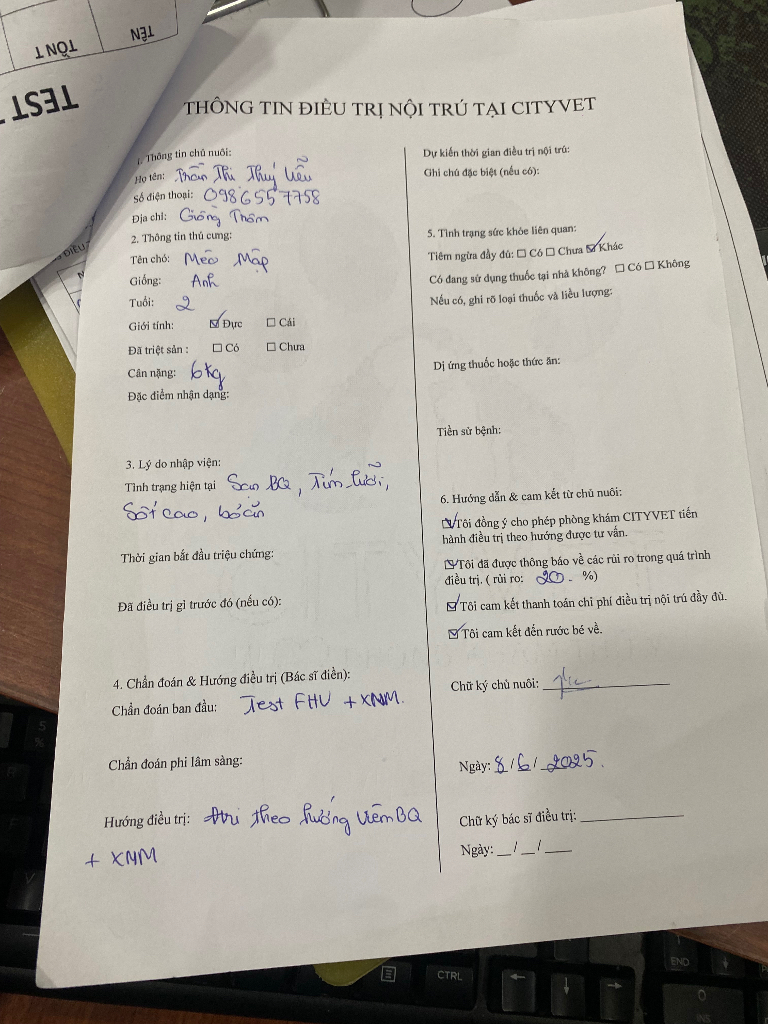 TÊN
TỒN T
TEST
THÔNG TIN ĐIỀU TRỊ NỘI TRÚ TẠI CITYVET
1. Thông tin chủ nuôi:
Họ tên: Trần Thi Thuý Liễu
Số điện thoại: 0986557758
Địa chỉ: Giồng Thôm
2. Thông tin thú cưng:
Tên chó: Mèo Mập
Giống: Anh
Tuổi: 2
Giới tính: ☑ Đực ☐ Cái
Đã triệt sản : ☐ Có ☐ Chưa
Cân nặng: 6kg
Đặc điểm nhận dạng:
3. Lý do nhập viện:
Tình trạng hiện tại Sạn BQ, Tím lưỡi,
Sốt cao, bỏ ăn
Thời gian bắt đầu triệu chứng:
Đã điều trị gì trước đó (nếu có):
4. Chẩn đoán & Hướng điều trị (Bác sĩ điền):
Chẩn đoán ban đầu: Test FHV + XNM.
Chẩn đoán phi lâm sàng:
Hướng điều trị: theo hướng viêm BQ
+ XNM
Dự kiến thời gian điều trị nội trú:
Ghi chú đặc biệt (nếu có):
5. Tình trạng sức khỏe liên quan:
Tiêm ngừa đầy đủ: ☐ Có ☐ Chưa ☑ Khác
Có đang sử dụng thuốc tại nhà không? ☐ Có ☐ Không
Nếu có, ghi rõ loại thuốc và liều lượng:
Dị ứng thuốc hoặc thức ăn:
Tiền sử bệnh:
6. Hướng dẫn & cam kết từ chủ nuôi:
☑ Tôi đồng ý cho phép phòng khám CITYVET tiến
hành điều trị theo hướng được tư vấn.
☑ Tôi đã được thông báo về các rủi ro trong quá trình
điều trị. ( rủi ro: 20. %)
☑ Tôi cam kết thanh toán chi phí điều trị nội trú đầy đủ.
☑ Tôi cam kết đến rước bé về.
Chữ ký chủ nuôi:
Ngày: 8/6/2025.
Chữ ký bác sĩ điều trị:
Ngày: __/__/____
CTRL
END
INS